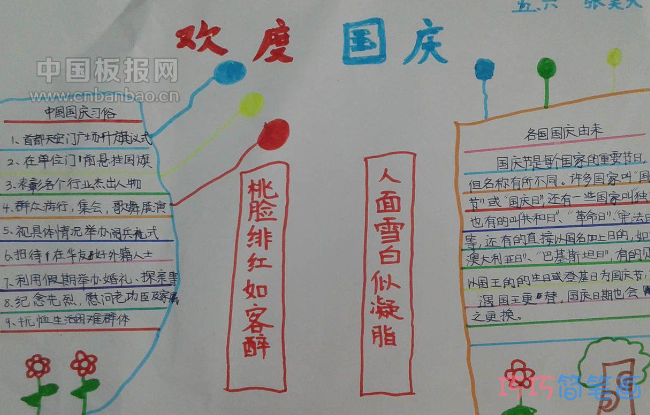 五.六
欢度国庆
中国板报网
www.cnbanbao.cn
中国国庆习俗
1、首都天安门广场升旗仪式
2、在单位门前悬挂国旗
3、表彰各个行业杰出人物
4、群众游行，集会，歌舞展演
5、视具体情况举办阅兵礼式
6、招待
7、利用假期举办婚礼、探亲等
8、纪念先烈，慰问老功臣及家属
9、抚恤生活困难群体
桃脸绯红如客醉
人面雪白似凝脂
各国国庆由来
国庆节是每个国家的重要节日，
但名称有所不同。许多国家叫“国
节”或“国庆日”，还有一些国家叫“独
也有的叫“共和日”、“革命日”、“宪法日
等，还有的直接以国名加上日的，如
澳大利亚日”、“巴基斯坦日”，有的
以国王的的生日或登基日为国庆节，
国王更替，国庆日期也会
之更换。
巧巧简笔画